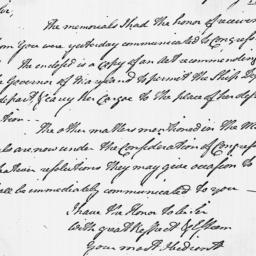 Sir,
The memorials I had the honor of receiving
from You were yesterday communicated to Congress
The enclosed is a Copy of an Act recommending
the Governor of Maryland to permit the Ship
depart & carry her Cargoe to the place of her
tion —
The other matters mentioned in the
are now under the Consideration of Congress
whatever resolutions they may give occasion to
shall be immediately communicated to you —
I have the Honor to be Sir
With great Respect & Esteem
Your most Obedient